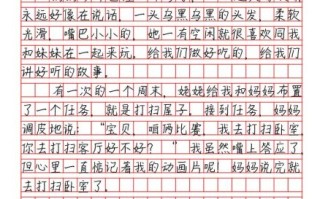 永远好像在说话，一头乌黑乌黑的头发，柔软
光滑，嘴巴小小的，她一有空闲就很喜欢同我
和妹妹在一起来玩，给我们做好吃的，给我们
讲好听的故事。
有一次的一个周末，姥姥给我和妈妈布置
了一个任务，就是打扫屋子，接到任务，妈妈
调皮地说："宝贝，咱俩比赛，我去打扫卧室
你去打扫客厅好不好？"我虽然嘴上答应了
但心里一直惦记着我的动画片呢，妈妈说完就
去打扫卧室了。